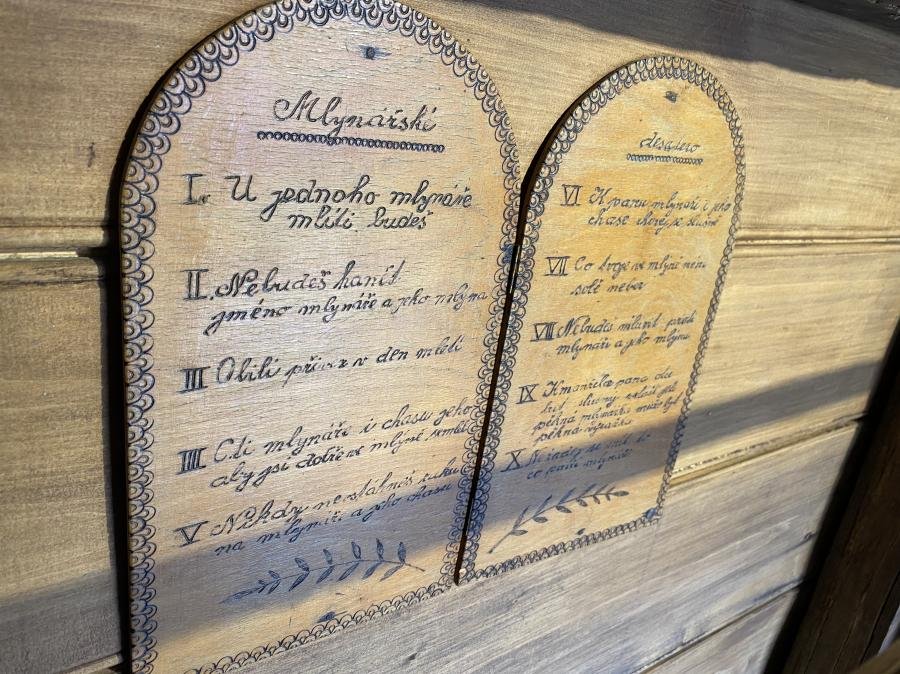 Mlynářské
I. U jednoho mlynáře
mlíti budeš
II. Nebudeš hanit
jméno mlynáře a jeho mlýna
III Obilí přivez v den mletí
IIII Cti mlynáře i chasu jeho
aby jsi dobře ve mlýně semlel
V Nikdy nevztáhneš ruku
na mlynáře a jeho chasu
desatero
VI K panu mlynáři i jeho
chase chovej se slušně
VII Co tvoje ve mlýně není
sobě neber
VIII Nebudeš mluvit proti
mlynáři a jeho mlýnu
IX K manželce pana
pěkná mlynářka
pěkná
X
co paní mlynář